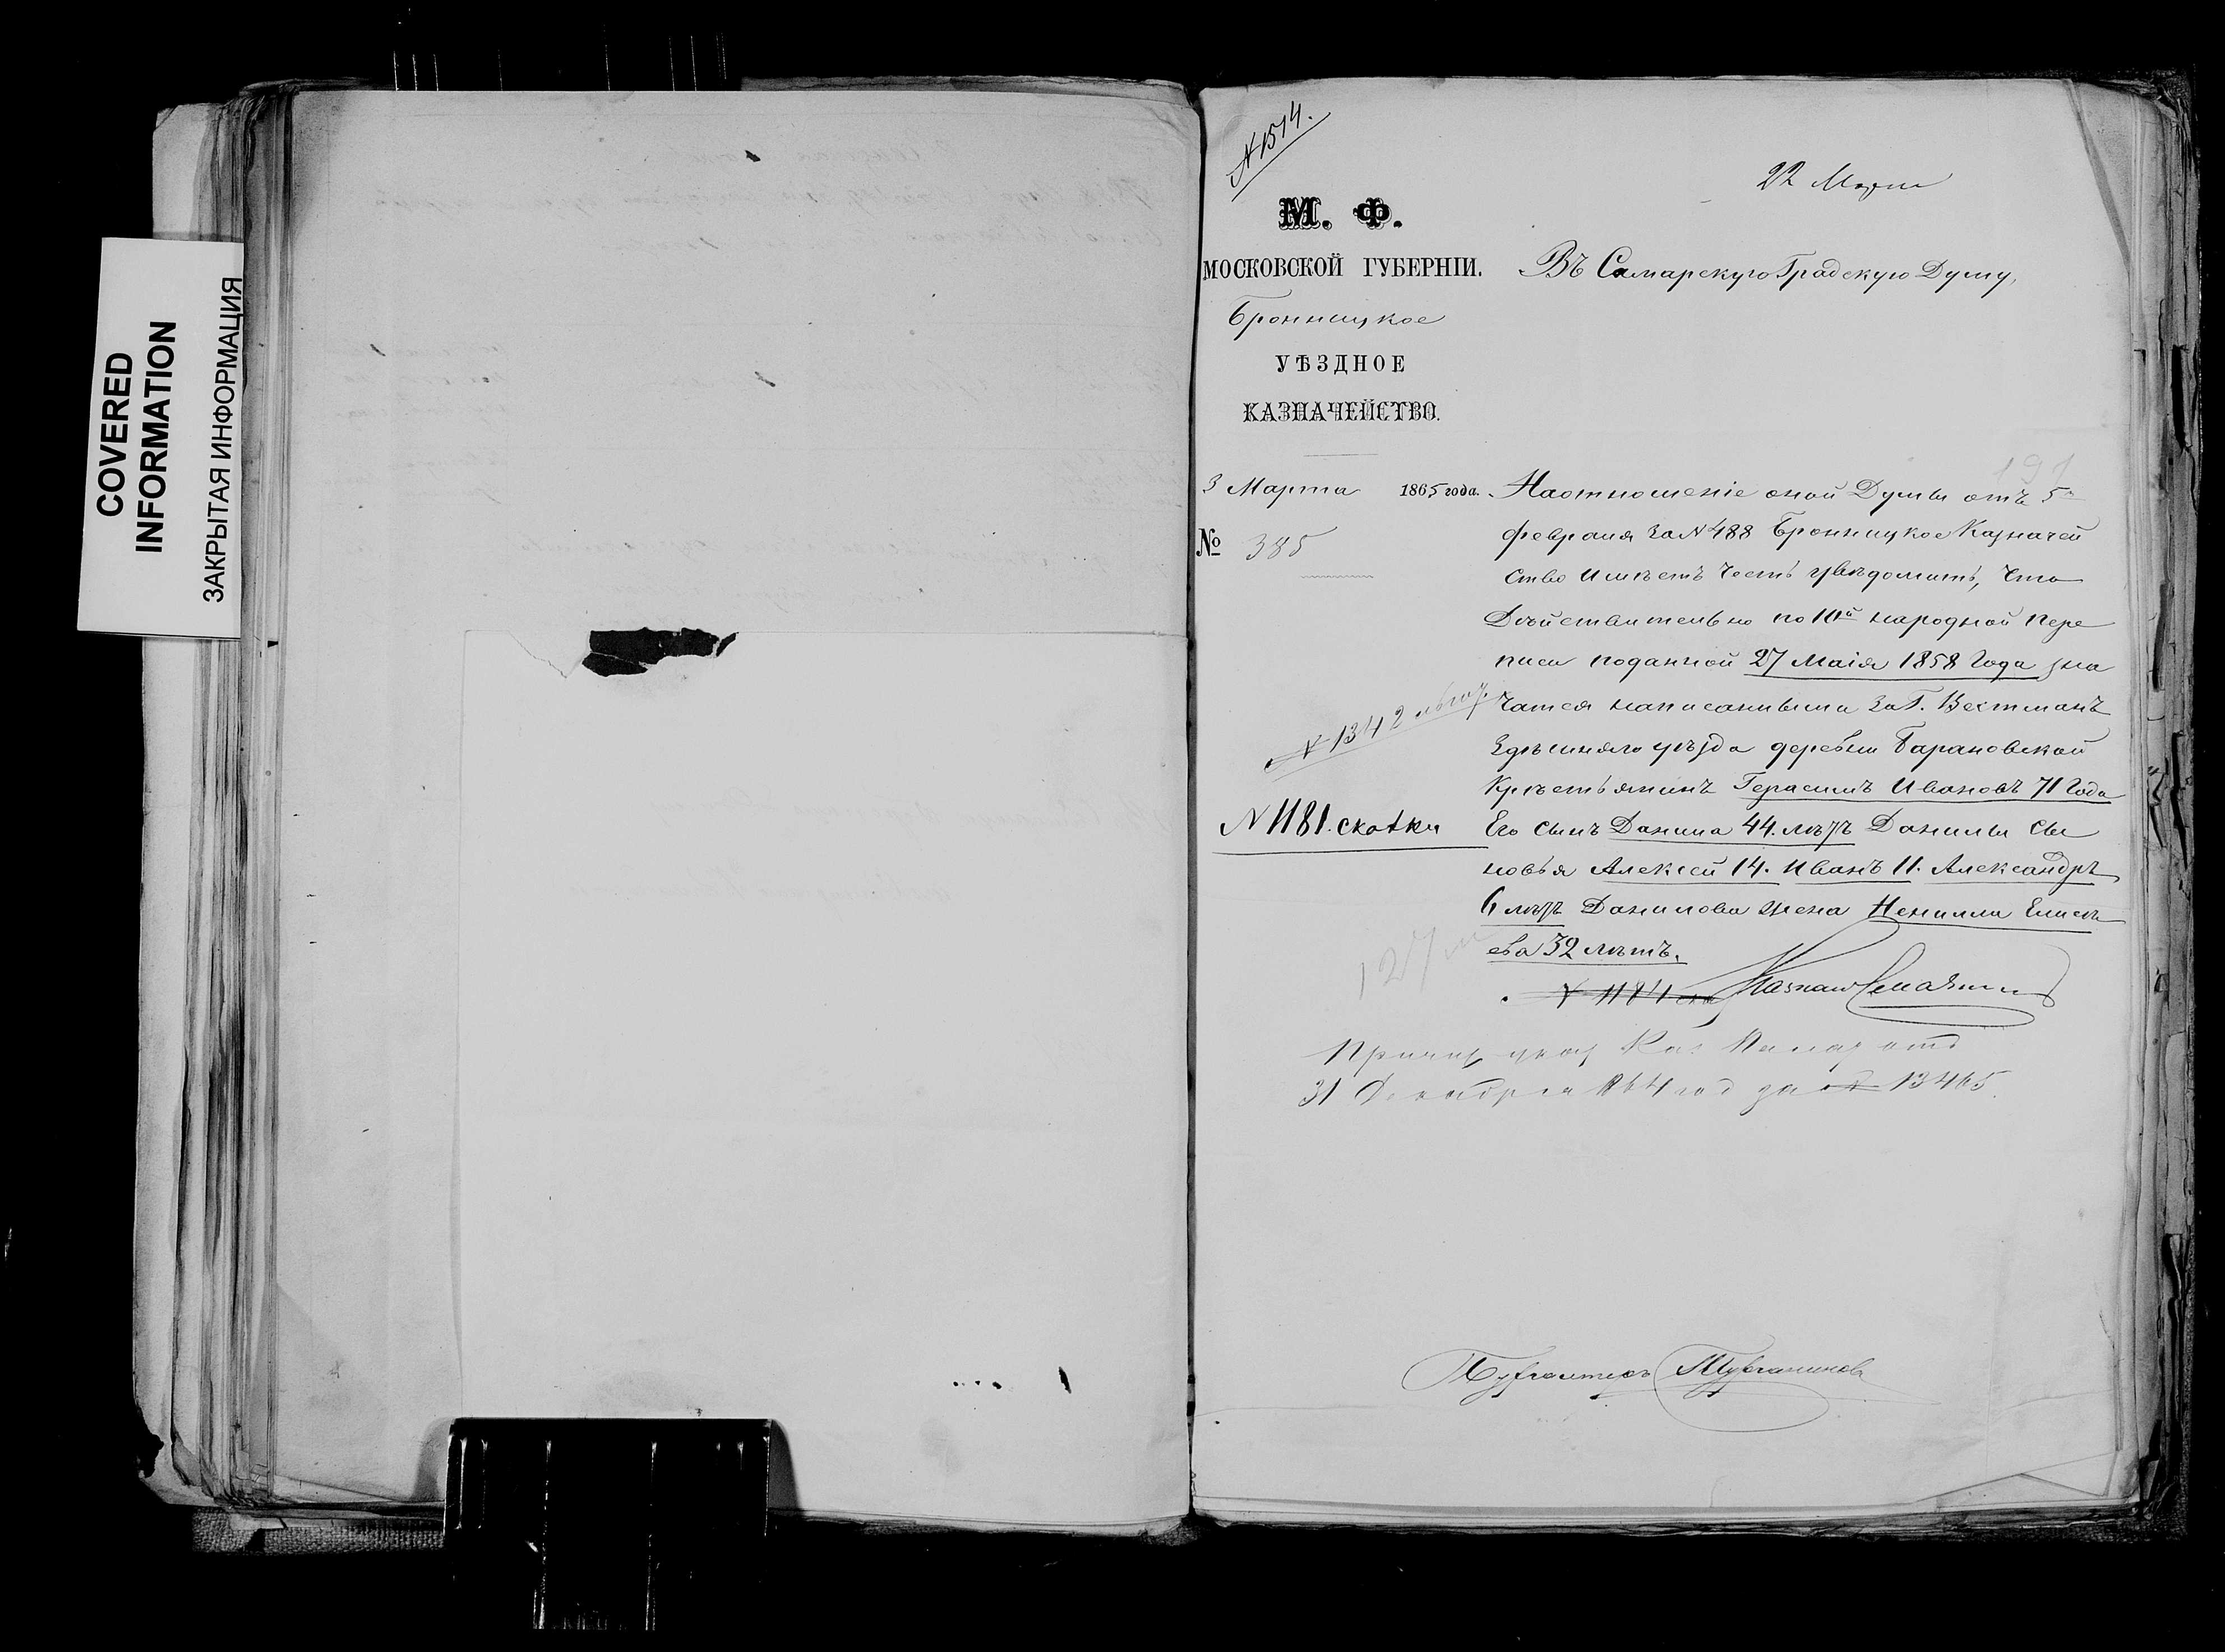 COVERED
INFORMATION
ЗАКРЫТАЯ ИНФОРМАЦИЯ
N 1514.
22 Марта
М. Ф.
МОСКОВСКОЙ ГУБЕРНІИ.
Бронницкое
УѢЗДНОЕ
КАЗНАЧЕЙСТВО.
3 Марта 1865 года.
№ 385
Въ Самарскую Градскую Думу,
191
На отношеніе оной Думы отъ 5го
февраля за N 488 Бронницкое Казначей
ство имѣетъ честь увѣдомить, что
Дѣйствительно по 10й народной пере
писи поданной 27 Маія 1858 года зна
чатся написанными за Г. Вестманъ
Здѣшняго уѣзда деревни Барановской
Крѣстьянинъ Герасимъ Ивановъ 71 года
Его сынъ Данила 44. лѣтъ Данилы сы
новья Алексей 14. Иванъ 11. Александръ
6 лѣтъ Данилова жена Ненилла Елисѣ
ева 32 лѣтъ.
N 1342
N 1181. скаски
127
N 1184
Казнач
Причи указ Каз Палат отъ
31 Декабря 1864 год за N 13465.
Бухгалтеръ